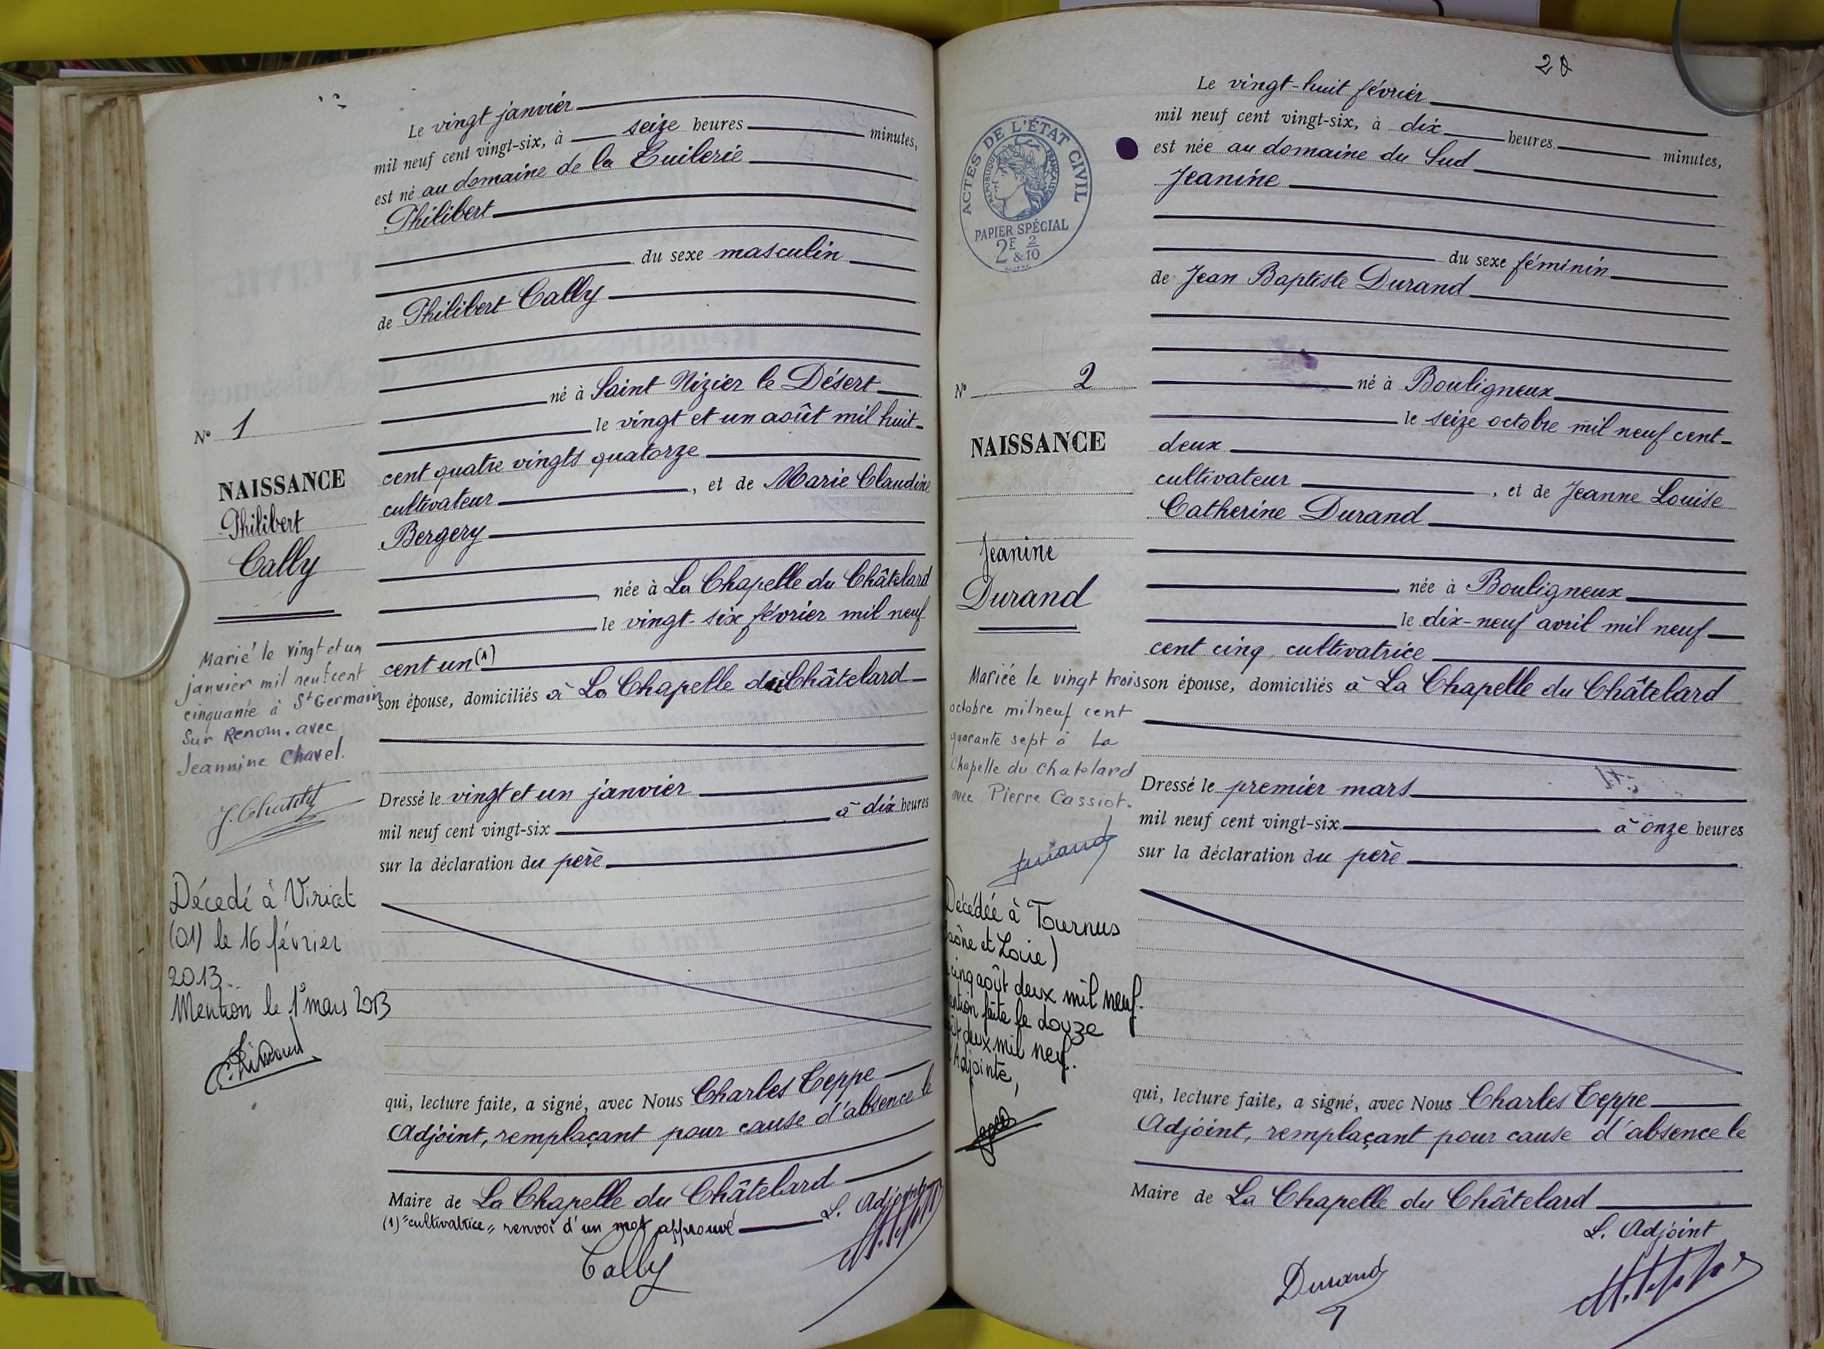 Le vingt janvier
mil neuf cent vingt-six, à seize heures minutes,
est né au domaine de la Tuilerie
Philibert
du sexe masculin
de Philibert Cally
né à Saint Nizier le Désert
le vingt et un août mil huit-
cent quatre vingts quatorze
cultivateur, et de Marie Claudine
Bergery
née à La Chapelle du Châtelard
le vingt-six février mil neuf
cent un (1)
son épouse, domiciliés à La Chapelle du Châtelard
Dressé le vingt et un janvier
mil neuf cent vingt-six à dix heures
sur la déclaration du père
qui, lecture faite, a signé, avec Nous Charles Teppe
Adjoint, remplaçant pour cause d'absence le
Maire de La Chapelle du Châtelard
(1) "cultivatrice" renvoi d'un mot approuvé
L. Adjoint
Cally
N° 1
NAISSANCE
Philibert
Cally
Marié le vingt et un
janvier mil neuf cent
cinquante à St Germain
Sur Renom. avec
Jeannine Chavel.
Décedé à Viriat
(01) le 16 février
2013.
Mention le 1° mars 2013
20
ACTES DE L'ÉTAT CIVIL
RÉPUBLIQUE FRANÇAISE
PAPIER SPÉCIAL
2F & 2/10
Le vingt-huit février
mil neuf cent vingt-six, à dix heures minutes,
est née au domaine du Sud
Jeanine
du sexe féminin
de Jean Baptiste Durand
né à Bouligneux
le seize octobre mil neuf cent-
deux
cultivateur, et de Jeanne Louise
Catherine Durand
née à Bouligneux
le dix-neuf avril mil neuf
cent cinq, cultivatrice
son épouse, domiciliés à La Chapelle du Châtelard
Dressé le premier mars
mil neuf cent vingt-six à onze heures
sur la déclaration du père
qui, lecture faite, a signé, avec Nous Charles Teppe
Adjoint, remplaçant pour cause d'absence le
Maire de La Chapelle du Châtelard
L. Adjoint
Durand
N° 2
NAISSANCE
Jeanine
Durand
Mariée le vingt trois
octobre mil neuf cent
quarante sept à La
Chapelle du Chatelard
avec Pierre Cassiot.
Durand
Décédée à Tournus
Saône et Loire)
cinq août deux mil neuf.
mention faite le douze
août deux mil neuf.
Adjointe,